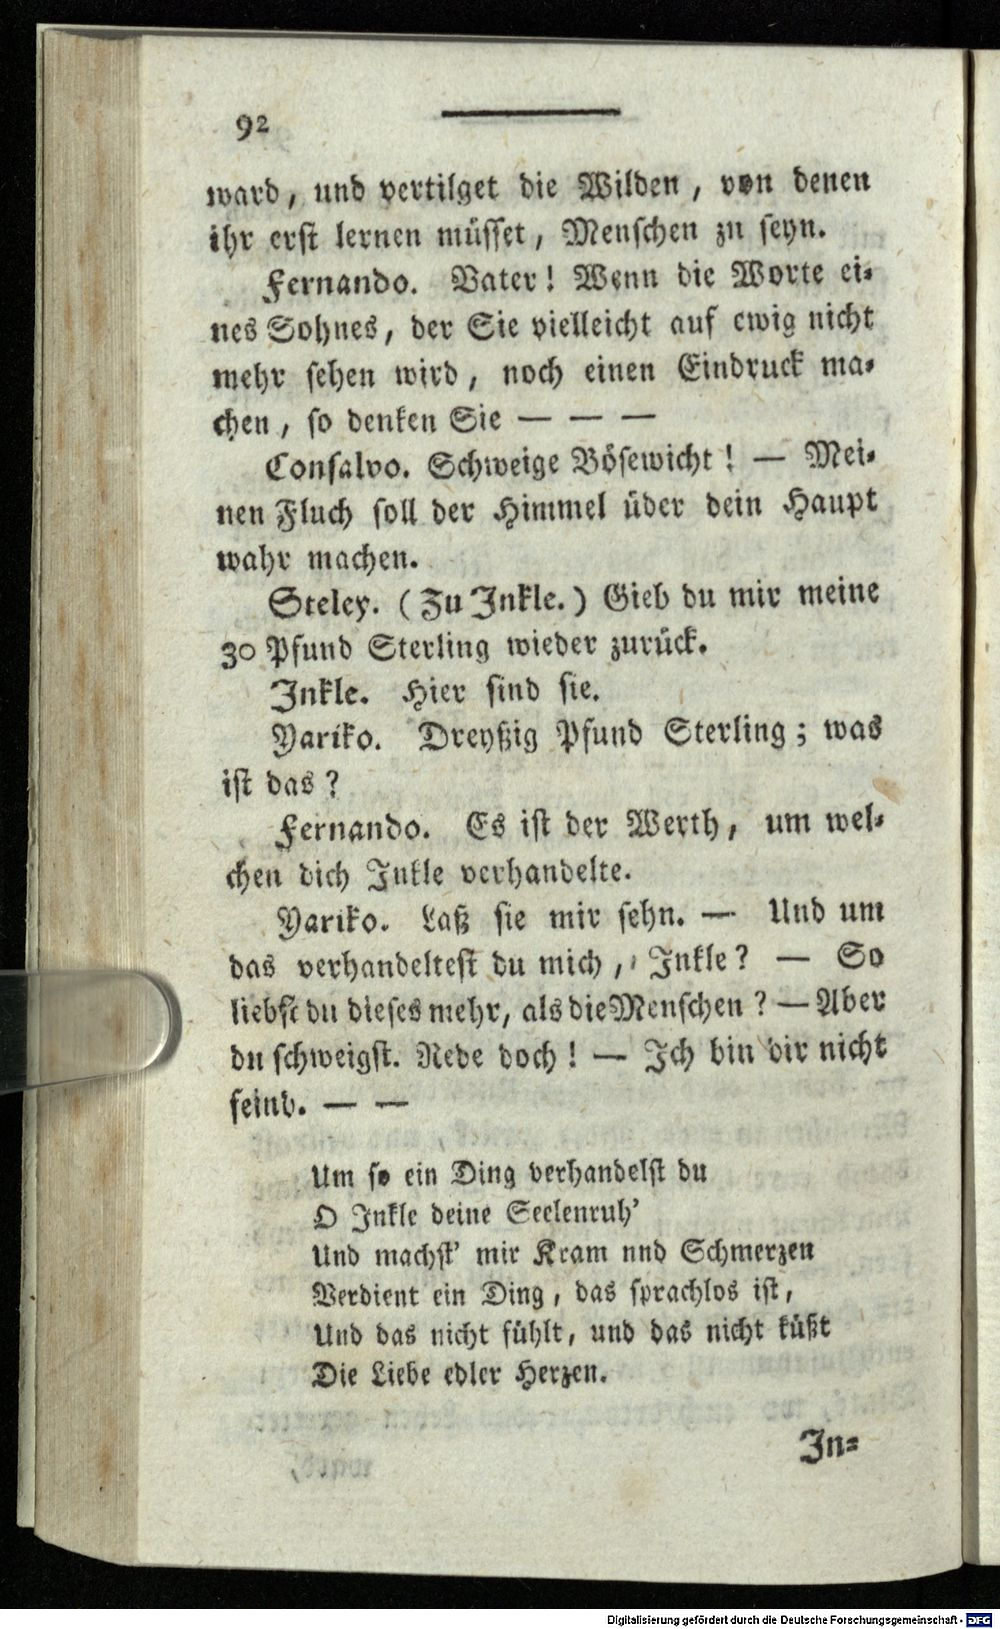 92
ward, und vertilget die Wilden, von denen
ihr erst lernen müsset, Menschen zu seyn.
Fernando. Vater! Wenn die Worte ei-
nes Sohnes, der Sie vielleicht auf ewig nicht
mehr sehen wird, noch einen Eindruck ma-
chen, so denken Sie — — —
Consalvo. Schweige Bösewicht! — Mei-
nen Fluch soll der Himmel über dein Haupt
wahr machen.
Steley. (Zu Inkle.) Gieb du mir meine
30 Pfund Sterling wieder zurück.
Inkle. Hier sind sie.
Yariko. Dreyßig Pfund Sterling; was
ist das?
Fernando. Es ist der Werth, um wel-
chen dich Inkle verhandelte.
Yariko. Laß sie mir sehn. — Und um
das verhandeltest du mich, Inkle? — So
liebst du dieses mehr, als die Menschen? — Aber
du schweigst. Rede doch! — Ich bin dir nicht
feind. — —
Um so ein Ding verhandelst du
O Inkle deine Seelenruh'
Und machst' mir Kram nnd Schmerzen
Verdient ein Ding, das sprachlos ist,
Und das nicht fühlt, und das nicht küßt
Die Liebe edler Herzen.
In-
Digitalisierung gefördert durch die Deutsche Forschungsgemeinschaft - DFG